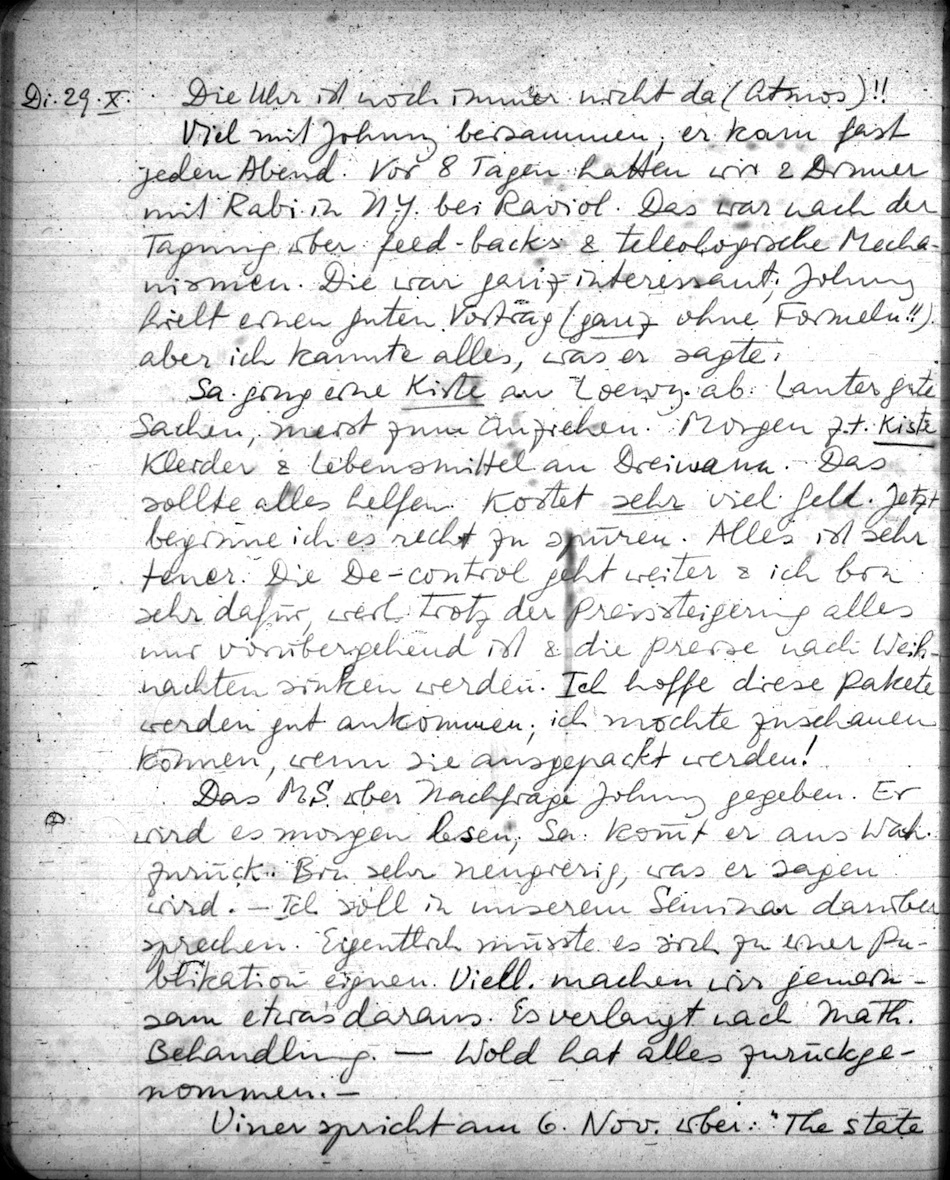 Di. 29.X. Die Uhr ist noch immer nicht da (Atmos)!!
Viel mit Johnny beisammen, er kam fast
jeden Abend. Vor 8 Tagen hatten wir 2 Dinner
mit Rabi in N.Y. bei Raviol. Das war nach der
Tagung über feed-backs & teleologische Mecha-
nismen. Die war ganz interessant; Johnny
hielt einen guten Vortrag (ganz ohne Formeln!!)
aber ich kannte alles, was er sagte.
Sa. ging eine Kiste an Loewy ab. Lauter gute
Sachen, meist zum Anziehen. Morgen z.t. Kiste
Kleider & Lebensmittel an Dreiwann. Das
sollte alles helfen. Kostet sehr viel Geld. Jetzt
beginne ich es recht zu spüren. Alles ist sehr
teuer. Die De-control geht weiter & ich bin
sehr dafür, weil trotz der Preissteigerung alles
nur vorübergehend ist & die Preise nach Weih-
nachten sinken werden. Ich hoffe diese Pakete
werden gut ankommen; ich möchte zuschauen
können, wenn sie ausgepackt werden!
Das MS. über Nachfrage Johnny gegeben. Er
wird es morgen lesen, Sa. kommt er aus Wash.
zurück. Bin sehr neugierig, was er sagen
wird. – Ich soll in unserem Seminar darüber
sprechen. Eigentlich müsste es sich zu einer Pu-
blikation eignen. Viell. machen wir gemein-
sam etwas daraus. Es verlangt nach Math.
Behandlung. — Wold hat alles zurückge-
nommen. –
Viner spricht am 6. Nov. über: "The state